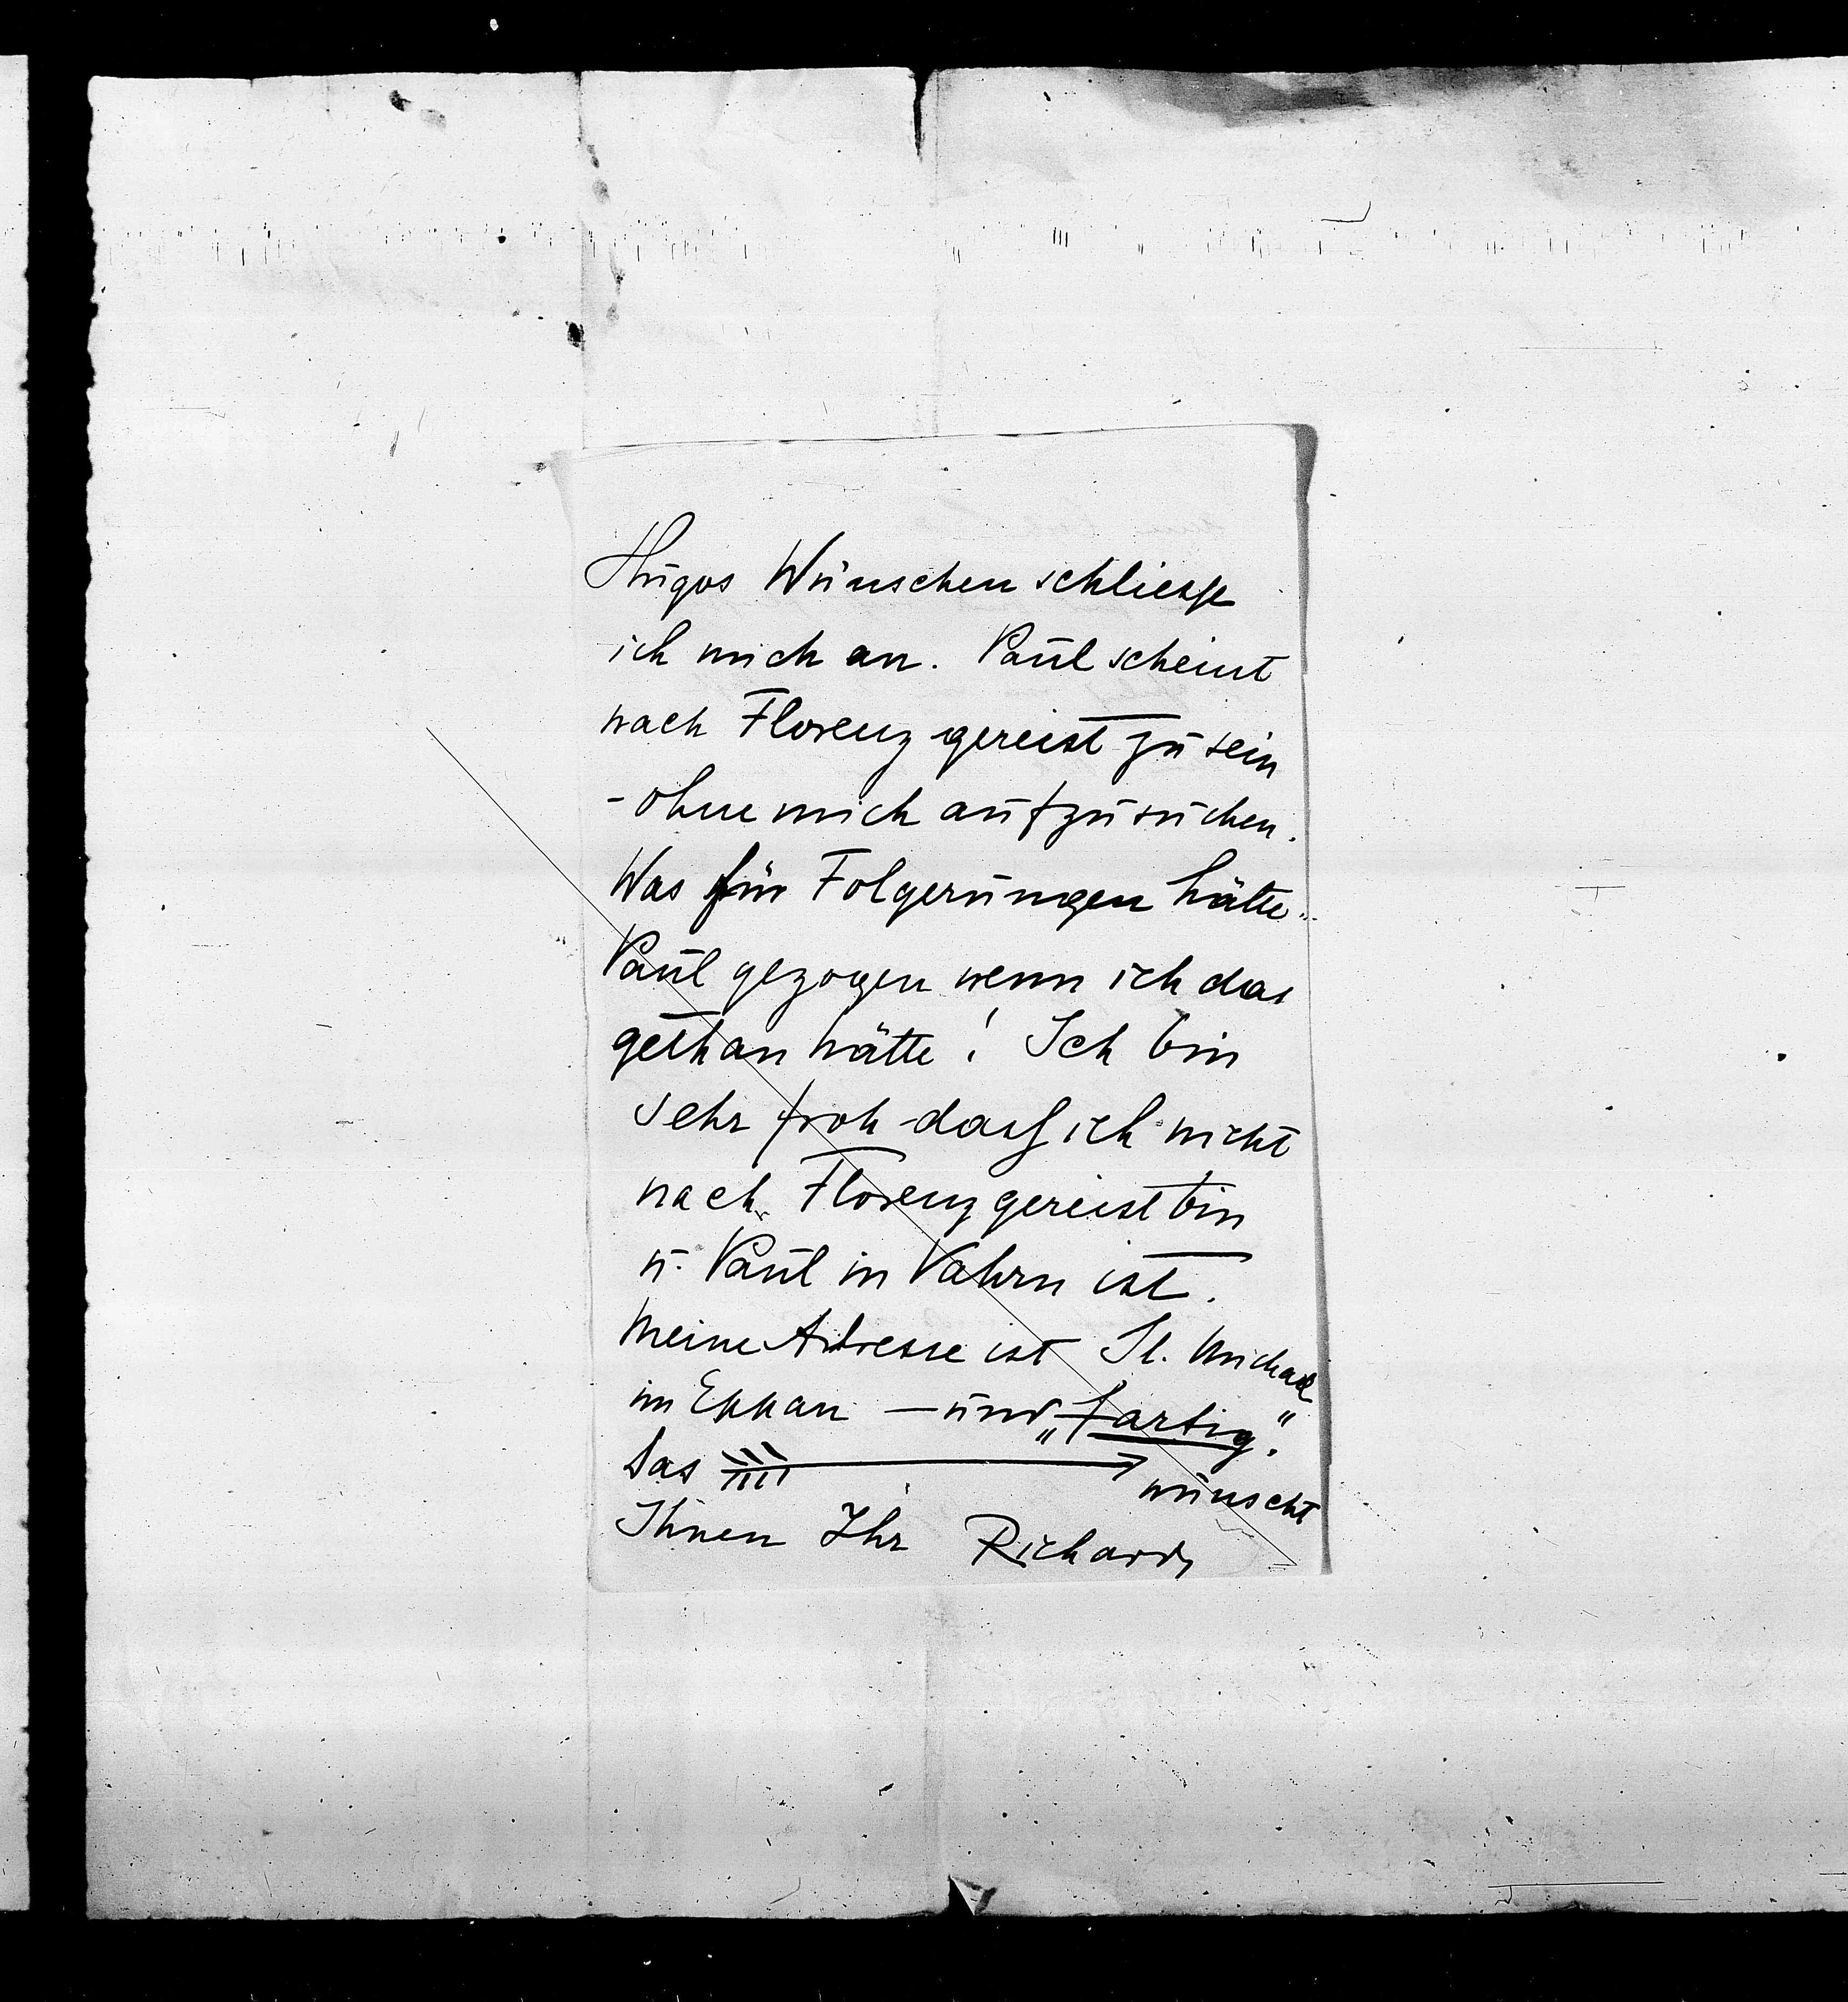 Hugos Wünschen schliesse
ich mich an. Paul scheint
nach Florenz gereist zu sein
- ohne mich aufzusuchen.
Was für Folgerungen hätte
Paul gezogen wenn ich das
gethan hätte! Ich bin
sehr froh dass ich nicht
nach Florenz gereist bin
u. Paul in Vahrn ist.
Meine Adresse ist St. Michael
im Eppan – und „fartig“.
Das wünscht
Ihnen Ihr Richard